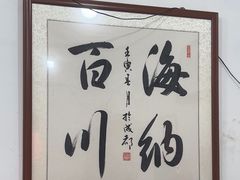 海纳
百川
壬寅夏月於成都